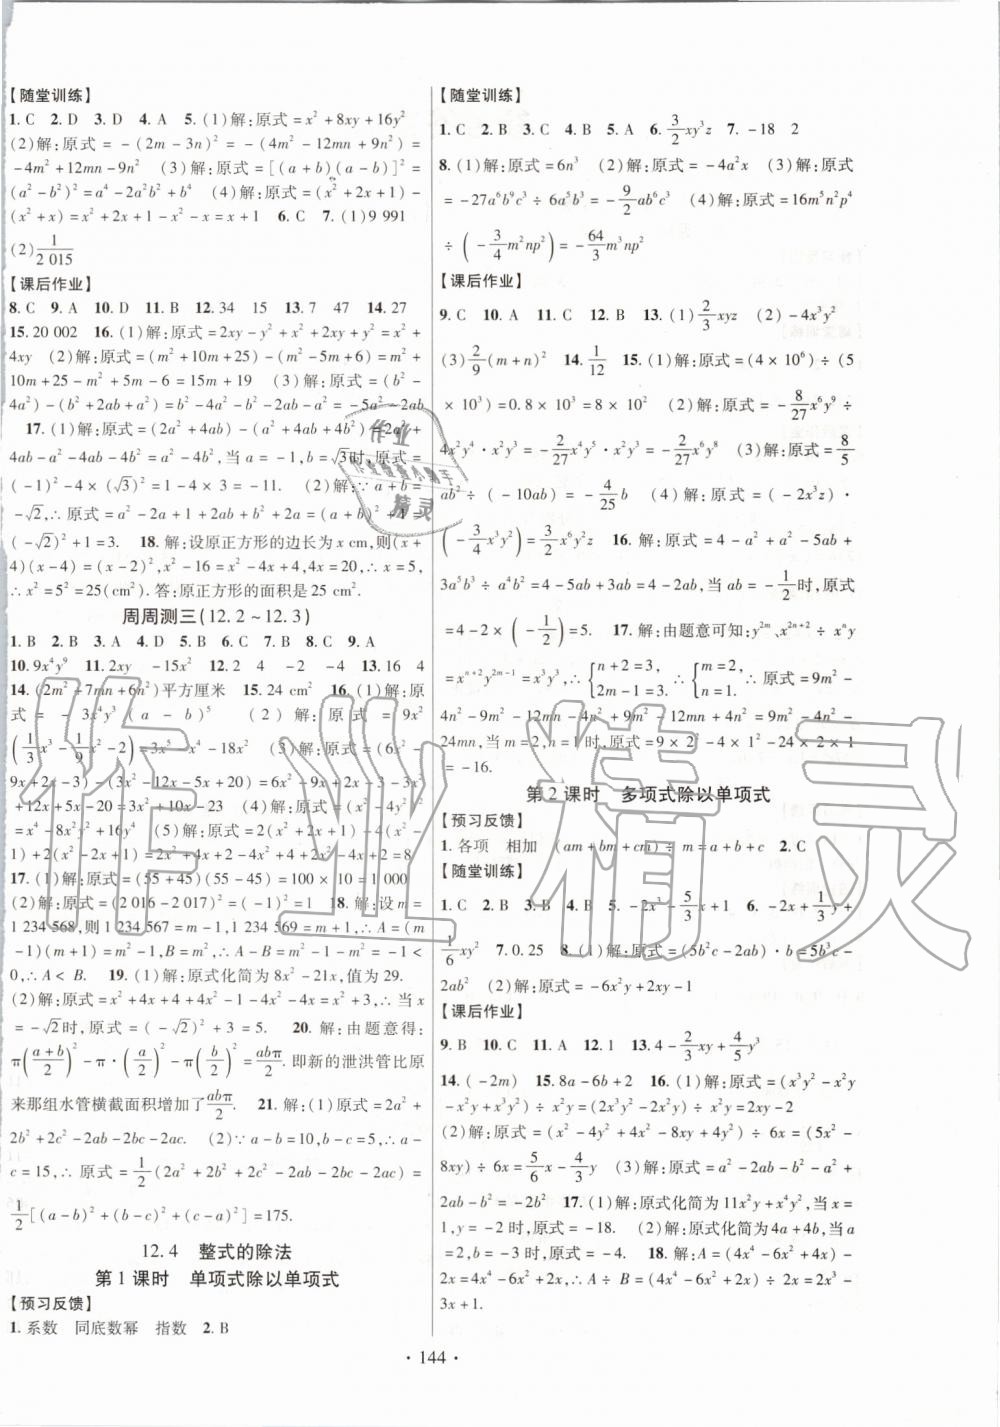 【随堂训练】
1. C 2. D 3. D 4. A 5. (1)解:原式=x²+8xy+16y²
(2)解:原式= -(2m-3n)²= -(4m²-12mn+9n²)=
-4m²+12mn-9n² (3)解:原式=[(a+b)(a-b)]²=
(a²-b²)²=a⁴-2a²b²+b⁴ (4)解:原式=(x²+2x+1)-
(x²+x)=x²+2x+1-x²-x=x+1 6. C 7. (1)9 991
(2) 1/2 015
【课后作业】
8. C 9. A 10. D 11. B 12. 34 15 13. 7 47 14. 27
15. 20 002 16. (1)解:原式=2xy-y²+x²+2xy+y²=x²+
4xy (2)解:原式=(m²+10m+25)-(m²-5m+6)=m²+
10m+25-m²+5m-6=15m+19 (3)解:原式=(b²-
4a²)-(b²+2ab+a²)=b²-4a²-b²-2ab-a²=-5a²-2ab
17. (1)解:原式=(2a²+4ab)-(a²+4ab+4b²)=2a²+
4ab-a²-4ab-4b²=a²-4b²,当a=-1,b=√3时,原式=
(-1)²-4×(√3)²=1-4×3=-11. (2)解:∵a+b=
-√2,∴原式=a²-2a+1+2ab+b²+2a=(a+b)²+1=
(-√2)²+1=3. 18. 解:设原正方形的边长为x cm,则(x+
4)(x-4)=(x-2)²,x²-16=x²-4x+4,4x=20,∴x=5,
∴x²=5²=25(cm²). 答:原正方形的面积是25 cm².
周周测三(12.2~12.3)
1. B 2. B 3. A 4. D 5. B 6. C 7. B 8. C 9. A
10. 9x⁴y⁹ 11. 2xy -15x² 12. 2 4 -2 -4 13. 16 4
14. (2m²+7mn+6n²)平方厘米 15. 24 cm² 16. (1)解:原
式= -3x⁴y³(a-b)⁵ (2)解:原式=9x²
(1/3 x³-1/9 x²-2)=3x⁵-x⁴-18x² (3)解:原式=(6x²-
9x+2x-3)-(3x²-12x-5x+20)=6x²-9x+2x-3-3x²+
12x+5x-20=3x²+10x-23 (4)解:原式=(x²-4y²)²
=x⁴-8x²y²+16y⁴ (5)解:原式=(2x²+2+4x)-(4x²-
1)+2(x²-2x+1)=2x²+2+4x-4x²+1+2x²-4x+2=5
17. (1)解:原式=(55+45)(55-45)=100×10=1 000
(2)解:原式=(2 016-2 017)²=(-1)²=1 18. 解:设m=
1 234 568,则1 234 567=m-1,1 234 569=m+1,∴A=(m-
1)(m+1)=m²-1,B=m²,∴A-B=m²-1-m²=-1<
0,∴A<B. 19. (1)解:原式化简为8x²-21x,值为29.
(2)解:原式=x²+4x+4+4x²-1-4x²-4x=x²+3,当x
=-√2时,原式=(-√2)²+3=5. 20. 解:由题意得:
π((a+b)/2)²-π·(a/2)²-π(b/2)²=abπ/2. 即新的泄洪管比原
来那组水管横截面积增加了abπ/2. 21. 解:(1)原式=2a²+
2b²+2c²-2ab-2bc-2ac. (2)∵a-b=10,b-c=5,∴a-
c=15,∴原式=1/2(2a²+2b²+2c²-2ab-2bc-2ac)=
1/2[(a-b)²+(b-c)²+(c-a)²]=175.
12.4 整式的除法
第1课时 单项式除以单项式
【预习反馈】
1. 系数 同底数幂 指数 2. B
【随堂训练】
1. C 2. B 3. C 4. B 5. A 6. 3/2 xy³z 7. -18 2
8. (1)解:原式=6n³ (2)解:原式=-4a²x (3)解:原式
=-27a⁶b⁹c³÷6a⁵b³=-9/2 ab⁶c³ (4)解:原式=16m⁵n²p⁴
÷(-3/4 m²np²)=-64/3 m³np²
【课后作业】
9. C 10. A 11. C 12. B 13. (1)2/3 xyz (2)-4x³y²
(3)2/9(m+n)² 14. 1/12 15. (1)解:原式=(4×10⁶)÷(5
×10³)=0.8×10³=8×10² (2)解:原式=-8/27 x⁶y⁹÷
4x²y⁴·x²y=-2/27 x⁴y⁵·x²y=-2/27 x⁶y⁶ (3)解:原式=8/5
ab²÷(-10ab)=-4/25 b (4)解:原式=(-2x³z)·
(-3/4 x³y²)=3/2 x⁶y²z 16. 解:原式=4-a²+a²-5ab+
3a⁵b³÷a⁴b²=4-5ab+3ab=4-2ab,当ab=-1/2时,原式
=4-2×(-1/2)=5. 17. 解:由题意可知:y²ᵐ、xⁿ⁺²÷xⁿy
=xⁿ⁺²y²ᵐ⁻¹=x³y³,∴{n+2=3, 2m-1=3,∴{m=2, n=1. 原式=9m²-
4n²-9m²-12mn-4n²+9m²-12mn+4n²=9m²-4n²-
24mn,当m=2,n=1时,原式=9×2²-4×1²-24×2×1
=-16.
第2课时 多项式除以单项式
【预习反馈】
1. 各项 相加 (am+bm+cm)÷m=a+b+c 2. C
【随堂训练】
1. C 2. B 3. B 4. B 5. -2x³-5/3 x+1 6. -2x+1/3 y-
1/6 xy² 7. 0.25 8. (1)解:原式=(5b²c-2ab)·b=5b³c-
2ab² (2)解:原式=-6x²y+2xy-1
【课后作业】
9. B 10. C 11. A 12. 1 13. 4-2/3 xy+4/5 y³
14. (-2m) 15. 8a-6b+2 16. (1)解:原式=(x³y²-x²y
-x²y+x³y²)÷x²y=(2x³y²-2x²y)÷x²y=2xy-2
(2)解:原式=(x²-4y²+4x²-8xy+4y²)÷6x=(5x²-
8xy)÷6x=5/6 x-4/3 y (3)解:原式=a²-2ab-b²-a²+
2ab-b²=-2b² 17. (1)解:原式化简为11x²y+x⁴y²,当x
=1,y=-2时,原式=-18. (2)解:原式化简为4a+4b,当a
=2时,原式=8. 18. 解:∵B=2x²,A+B=8x⁴-4x²+2x²,
A=8x⁴-6x³+2x²,∴A÷B=(8x⁴-6x³+2x²)÷2x²=
4x²-3x+1.
· 144 ·